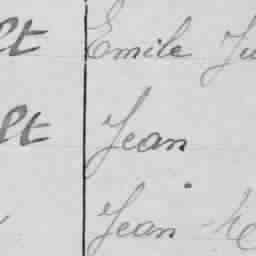 lt Emile Ju
lt Jean
Jean